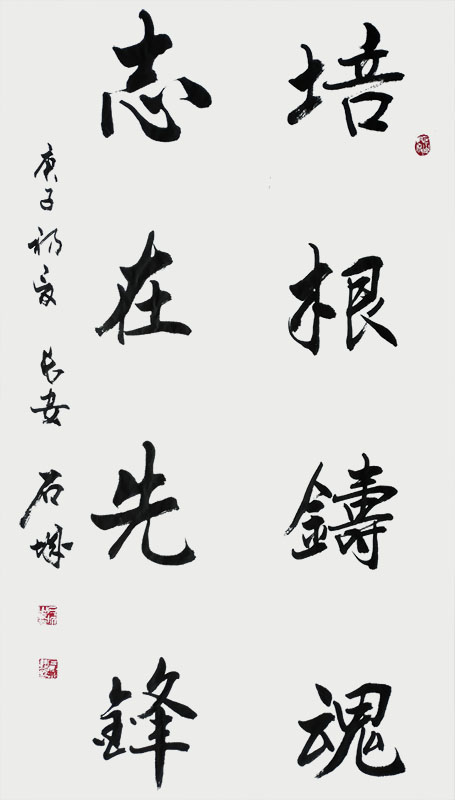 培根鑄魂
志在先鋒
庚子初夏 長安 石城